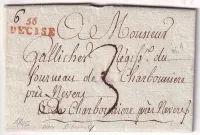 6
56
DECISE
A Monsieur
Gallicher
fourneau de Charbonnière
près Nevers
3
à Charbonnière près Nevers